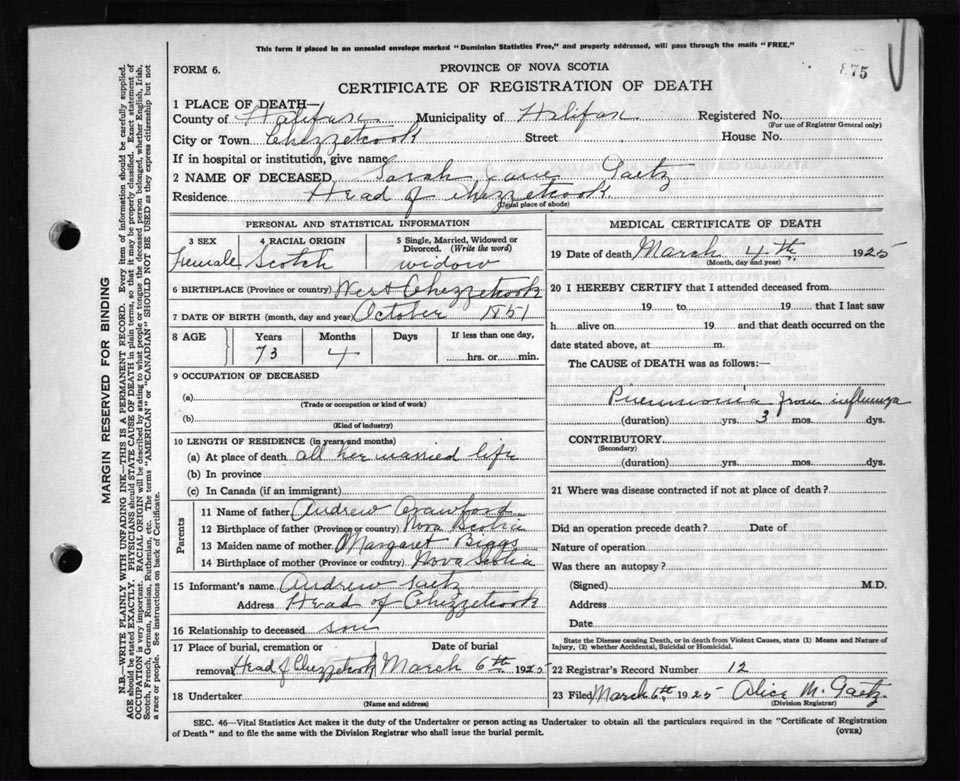 This form if placed in an unsealed envelope marked "Dominion Statistics Free," and properly addressed, will pass through the mails "FREE."
FORM 6.
PROVINCE OF NOVA SCOTIA
875
CERTIFICATE OF REGISTRATION OF DEATH
1 PLACE OF DEATH—
County of Halifax Municipality of Halifax Registered No.
(For use of Registrar General only)
City or Town Chezzetcook Street House No.
If in hospital or institution, give name
2 NAME OF DECEASED Sarah Jane Gaetz
Residence Head of Chezzetcook
(Usual place of abode)
PERSONAL AND STATISTICAL INFORMATION
3 SEX 4 RACIAL ORIGIN 5 Single, Married, Widowed or Divorced. (Write the word)
Female Scotch widow
6 BIRTHPLACE (Province or country) West Chezzetcook
7 DATE OF BIRTH (month, day and year) October 1851
8 AGE Years Months Days If less than one day,
73 4 hrs. or min.
9 OCCUPATION OF DECEASED
(a)
(Trade or occupation or kind of work)
(b)
(Kind of industry)
10 LENGTH OF RESIDENCE (in years and months)
(a) At place of death all her married life
(b) In province
(c) In Canada (if an immigrant)
Parents
11 Name of father Andrew Crawford
12 Birthplace of father (Province or country) Nova Scotia
13 Maiden name of mother Margaret Biggs
14 Birthplace of mother (Province or country) Nova Scotia
15 Informant's name Andrew Gaetz
Address Head of Chezzetcook
16 Relationship to deceased son
17 Place of burial, cremation or removal Head of Chezzetcook Date of burial March 6th 1925
18 Undertaker
(Name and address)
MEDICAL CERTIFICATE OF DEATH
19 Date of death March 4th 1925
(Month, day and year)
20 I HEREBY CERTIFY that I attended deceased from
19 to 19 that I last saw
h alive on 19 and that death occurred on the
date stated above, at m.
The CAUSE of DEATH was as follows:—
Pneumonia from influenza
(duration) yrs. 3 mos. dys.
CONTRIBUTORY
(Secondary)
(duration) yrs. mos. dys.
21 Where was disease contracted if not at place of death?
Did an operation precede death? Date of
Nature of operation
Was there an autopsy?
(Signed) M.D.
Address
Date
State the Disease causing Death, or in death from Violent Causes, state (1) Means and Nature of
Injury, (2) whether Accidental, Suicidal or Homicidal.
22 Registrar's Record Number 12
23 Filed March 6th 1925 Alice M. Gaetz
(Division Registrar)
SEC. 46—Vital Statistics Act makes it the duty of the Undertaker or person acting as Undertaker to obtain all the particulars required in the "Certificate of Registration
of Death" and to file the same with the Division Registrar who shall issue the burial permit.
(OVER)
MARGIN RESERVED FOR BINDING
N.B.—WRITE PLAINLY WITH UNFADING INK—THIS IS A PERMANENT RECORD. Every item of information should be carefully supplied.
AGE should be stated EXACTLY. PHYSICIANS should STATE CAUSE OF DEATH in plain terms, so that it may be properly classified. Exact statement of
OCCUPATION is very important. RACIAL ORIGIN will be described by stating to what people or tongue the deceased person belonged, whether English, Irish,
Scotch, French, German, Russian, Ruthenian, etc. The terms "AMERICAN" or "CANADIAN" SHOULD NOT BE USED as they express citizenship but not
a race or people. See instructions on back of Certificate.